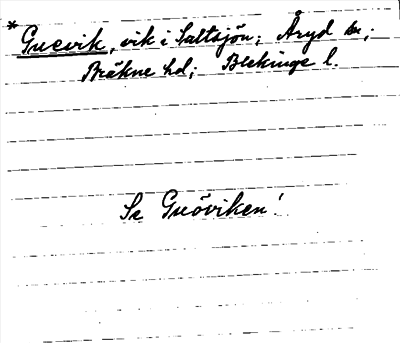 * Guevik, vik i Saltsjön; Åryd sn;
Bräkne hd; Blekinge l.
Se Guöviken!